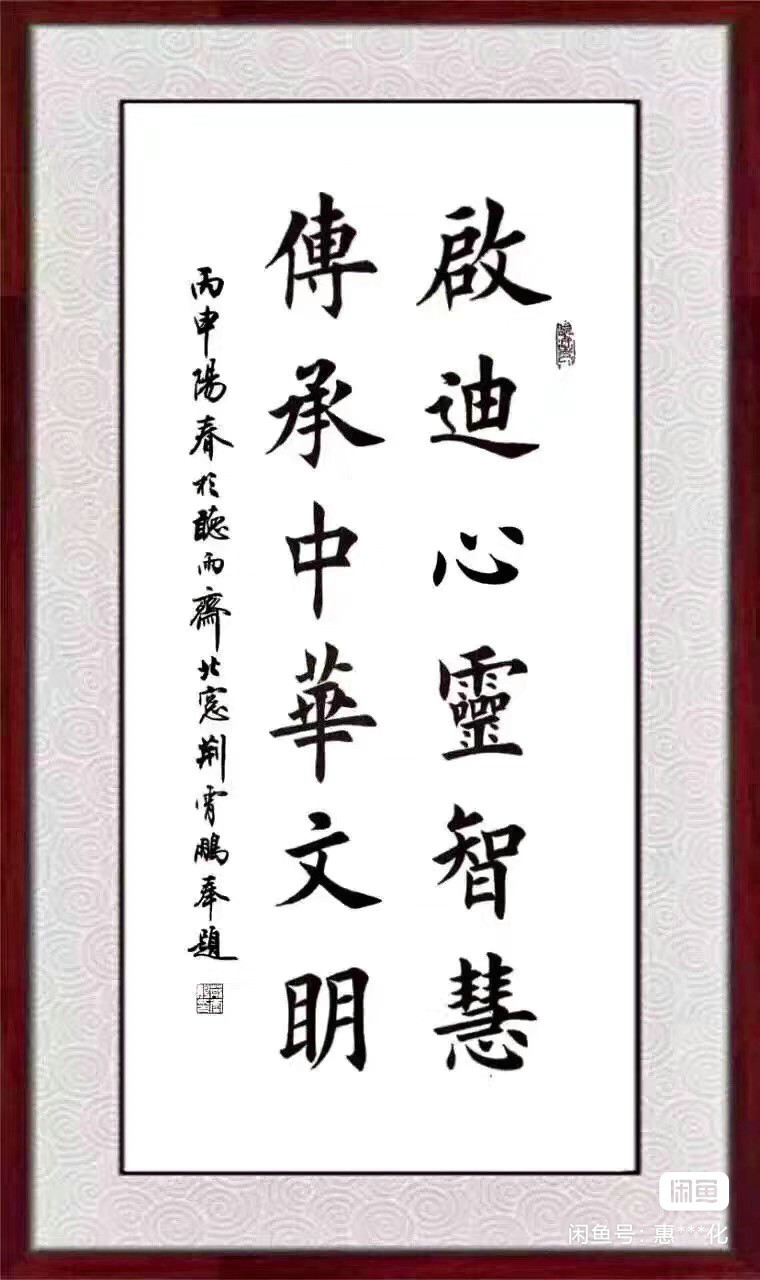 啟迪心靈智慧
傳承中華文明
丙申陽春於聽雨齋北窓荊霄鵬奉題
闲鱼
闲鱼号：惠***化